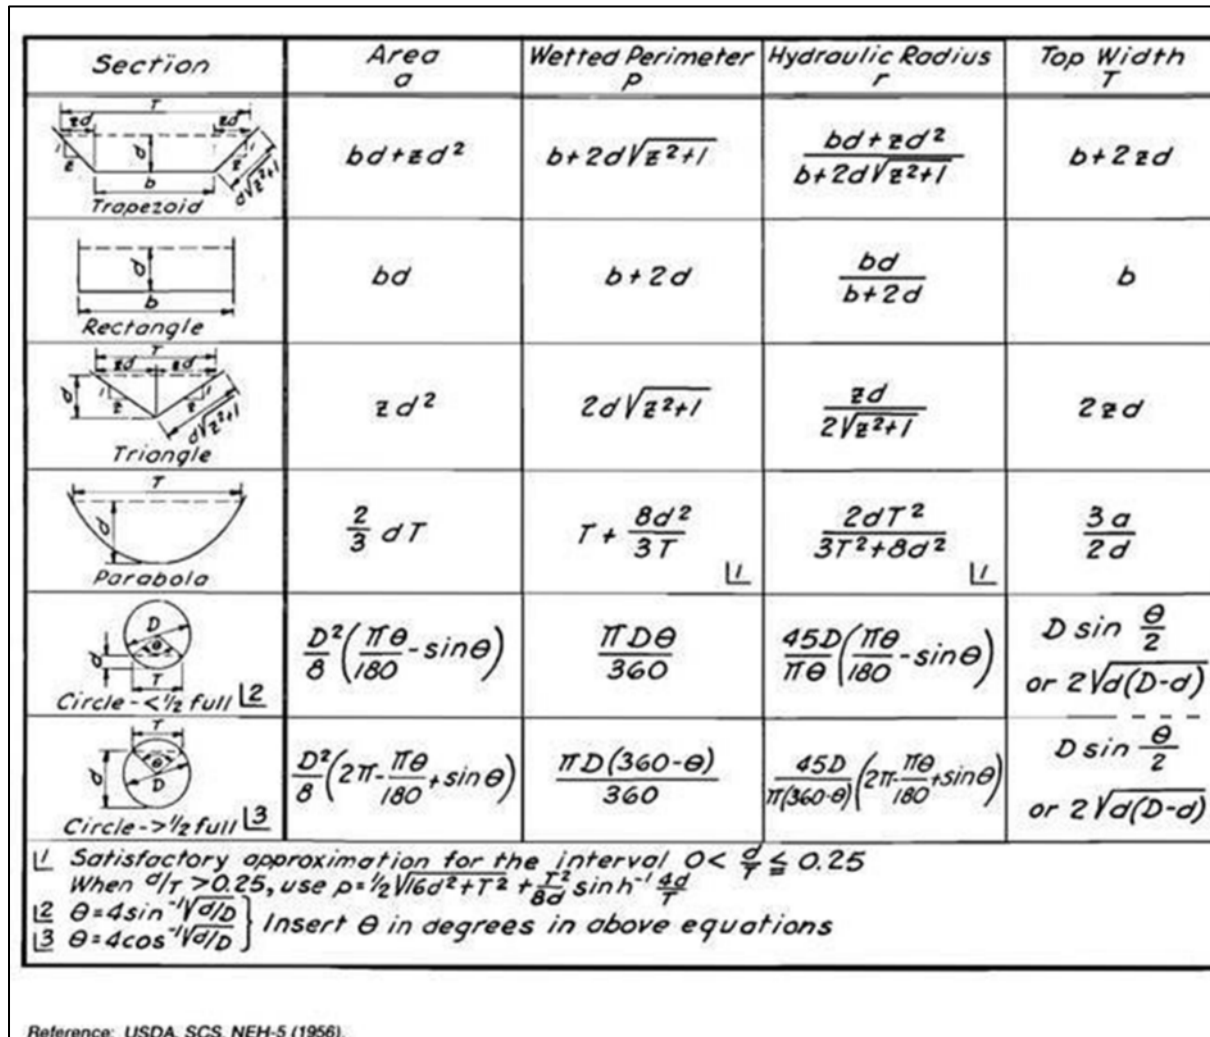 Section
Area
a
Wetted Perimeter
P
Hydraulic Radius
r
Top Width
T
T
zd
zd
d
1
z
1
z
b
d√z²+1
Trapezoid
bd+zd²
b+2d√z²+1
bd+zd²
b+2d√z²+1
b+2zd
d
b
Rectangle
bd
b+2d
bd
b+2d
b
T
zd
zd
d
1
z
1
z
d√z²+1
Triangle
zd²
2d√z²+1
zd
2√z²+1
2zd
T
d
Parabola
2/3 dT
T + 8d²/3T
1
2dT²
3T²+8d²
1
3a
2d
D
θ
d
T
Circle-<1/2 full 2
D²/8 (πθ/180 - sinθ)
πDθ
360
45D/πθ (πθ/180 - sinθ)
D sin θ/2
or 2√d(D-d)
T
θ
d
D
Circle->1/2 full 3
D²/8 (2π - πθ/180 + sinθ)
πD(360-θ)
360
45D/π(360-θ) (2π - πθ/180 + sinθ)
D sin θ/2
or 2√d(D-d)
1 Satisfactory approximation for the interval 0< d/T ≦ 0.25
When d/T >0.25, use p=1/2√16d²+T² + T²/8d sinh⁻¹ 4d/T
2 θ=4sin⁻¹√d/D
3 θ=4cos⁻¹√d/D
} Insert θ in degrees in above equations
Reference: USDA, SCS, NEH-5 (1956).